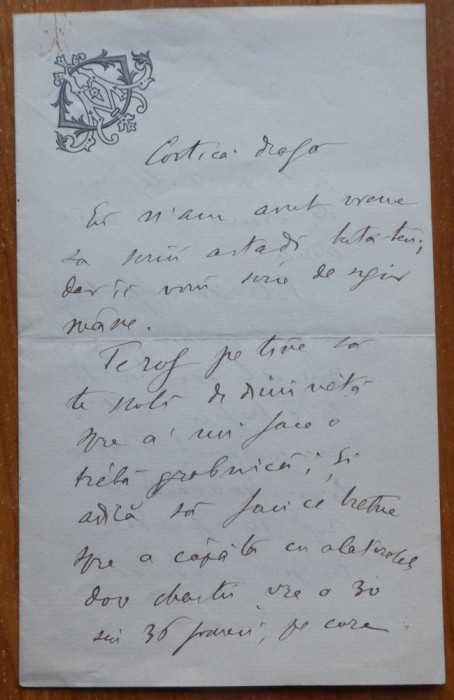 Costica draga
Eu n'am avut vreme
sa scriu astadi tată-teu;
dar ii voiu scrie de sigur
mâne.
Te rog pe tine sa
te scoli de dimineţă
spre a'mi face o
trébă grabnică; Si
adică să faci ce trebue
spre a căpăta cu
dou vre o 30
seu 36 franci, pe care